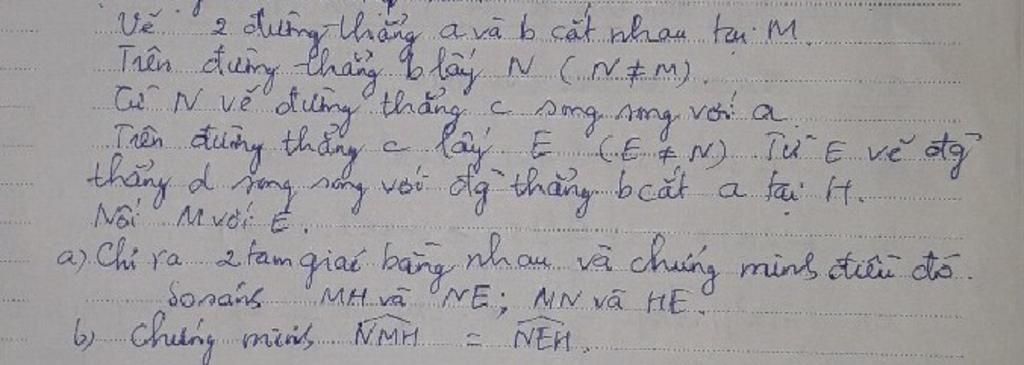 Vẽ 2 đường thẳng a và b cắt nhau tại M.
Trên đường thẳng b lấy N (N ≠ M).
Từ N vẽ đường thẳng c song song với a
Trên đường thẳng c lấy E (E ≠ N) Từ E vẽ đg
thẳng d song song với đg thẳng b cắt a tại H.
Nối M với E.
a) Chỉ ra 2 tam giác bằng nhau và chứng minh điều đó.
So sánh MH và NE; MN và HE.
b) Chứng minh \widehat{NMH} = \widehat{NEH}.